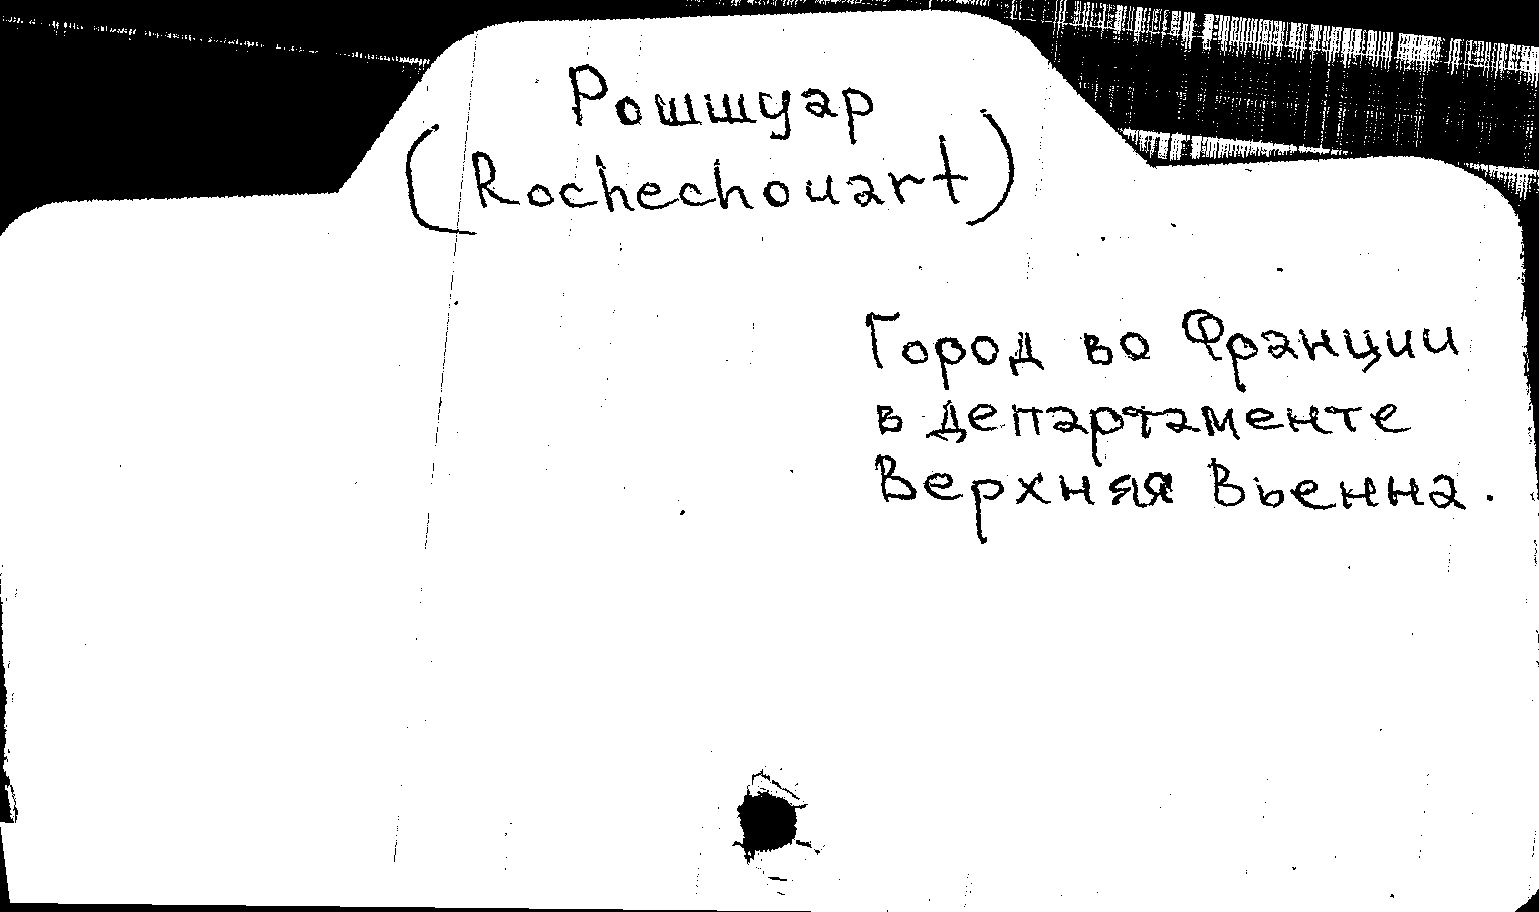 Рошшуар
(Rochechouart)
Город во Франции
в департаменте
Верхняя Вьенна.